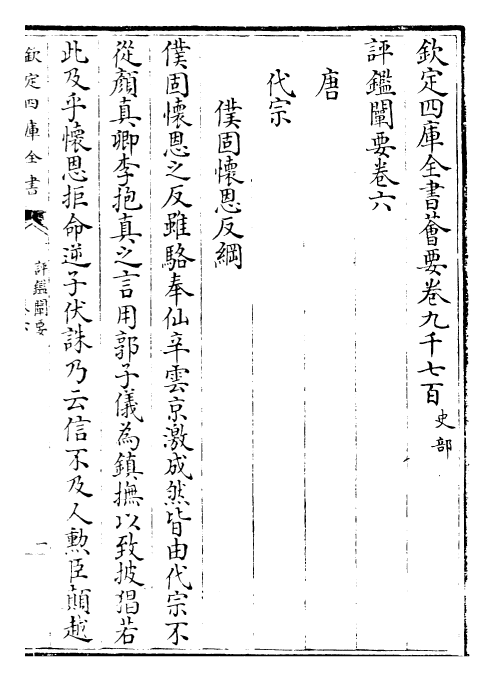 欽定四庫全書薈要卷九千七百史部
評鑑闡要卷六
唐
代宗
僕固懷恩反綱
僕固懷恩之反雖駱奉仙辛雲京激成然皆由代宗不
從顔真卿李抱真之言用郭子儀為鎮撫以致披猖若
此及乎懷恩拒命逆子伏誅乃云信不及人勲臣顛越
欽定四庫全書
評鑑闡要
一